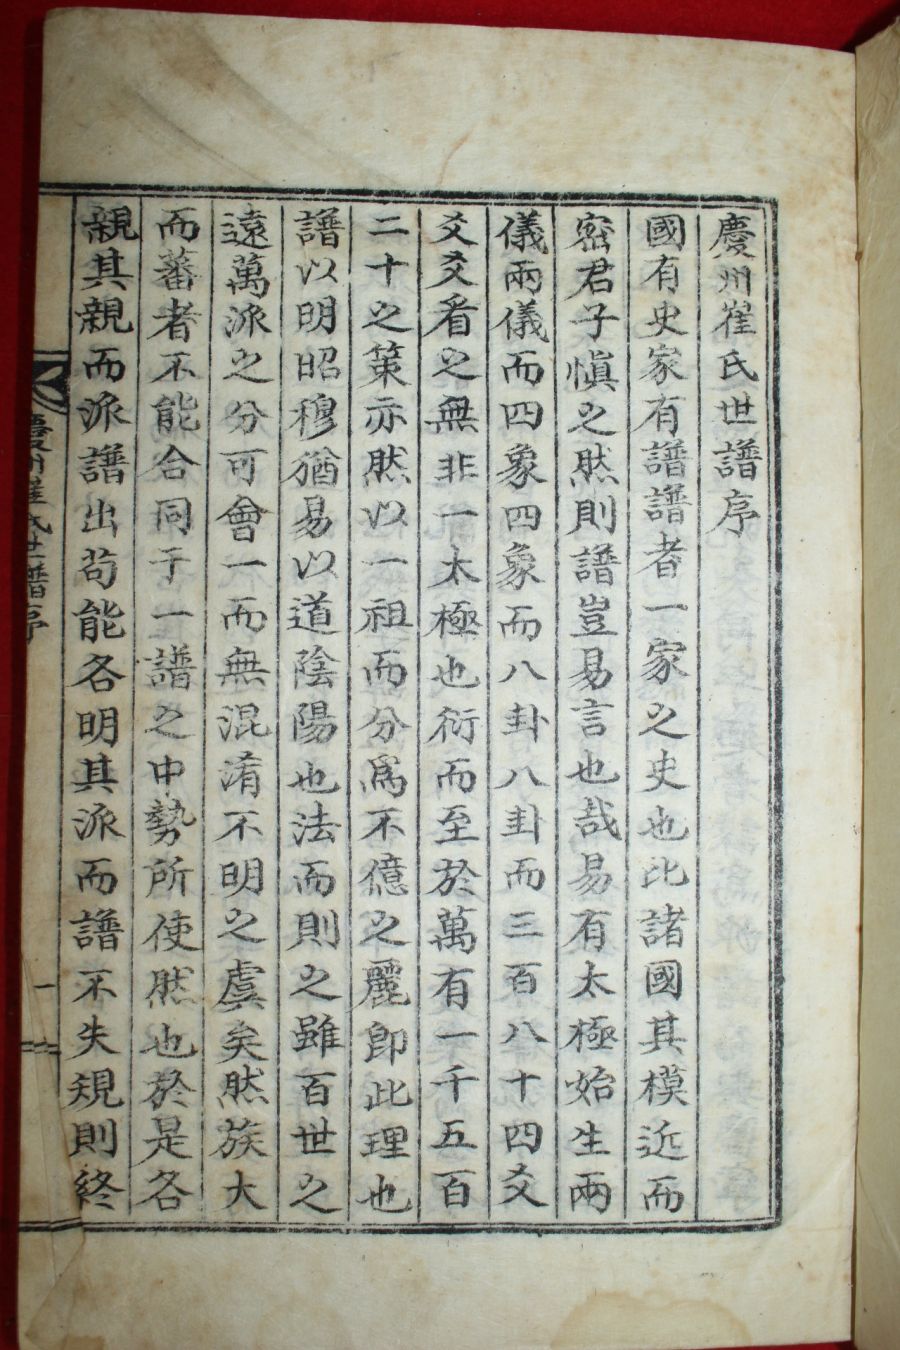 慶州崔氏世譜序
國有史家有譜譜者一家之史也比諸國其模近而
密君子愼之然則譜豈易言也哉易有太極始生兩
儀兩儀而四象四象而八卦八卦而三百八十四爻
爻爻看之無非一太極也衍而至於萬有一千五百
二十之策亦然以一祖而分爲不億之麗卽此理也
譜以明昭穆猶易以道陰陽也法而則之雖百世之
遠萬派之分可會一而無混淆不明之虞矣然族大
而蕃者不能合同于一譜之中勢所使然也於是各
親其親而派譜出苟能各明其派而譜不失規則終
慶州崔氏世譜序
一